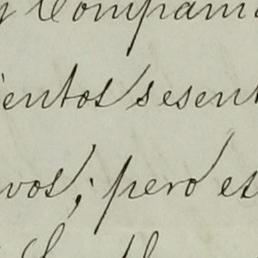 y Compañi
ientos sesent
vos; pero es